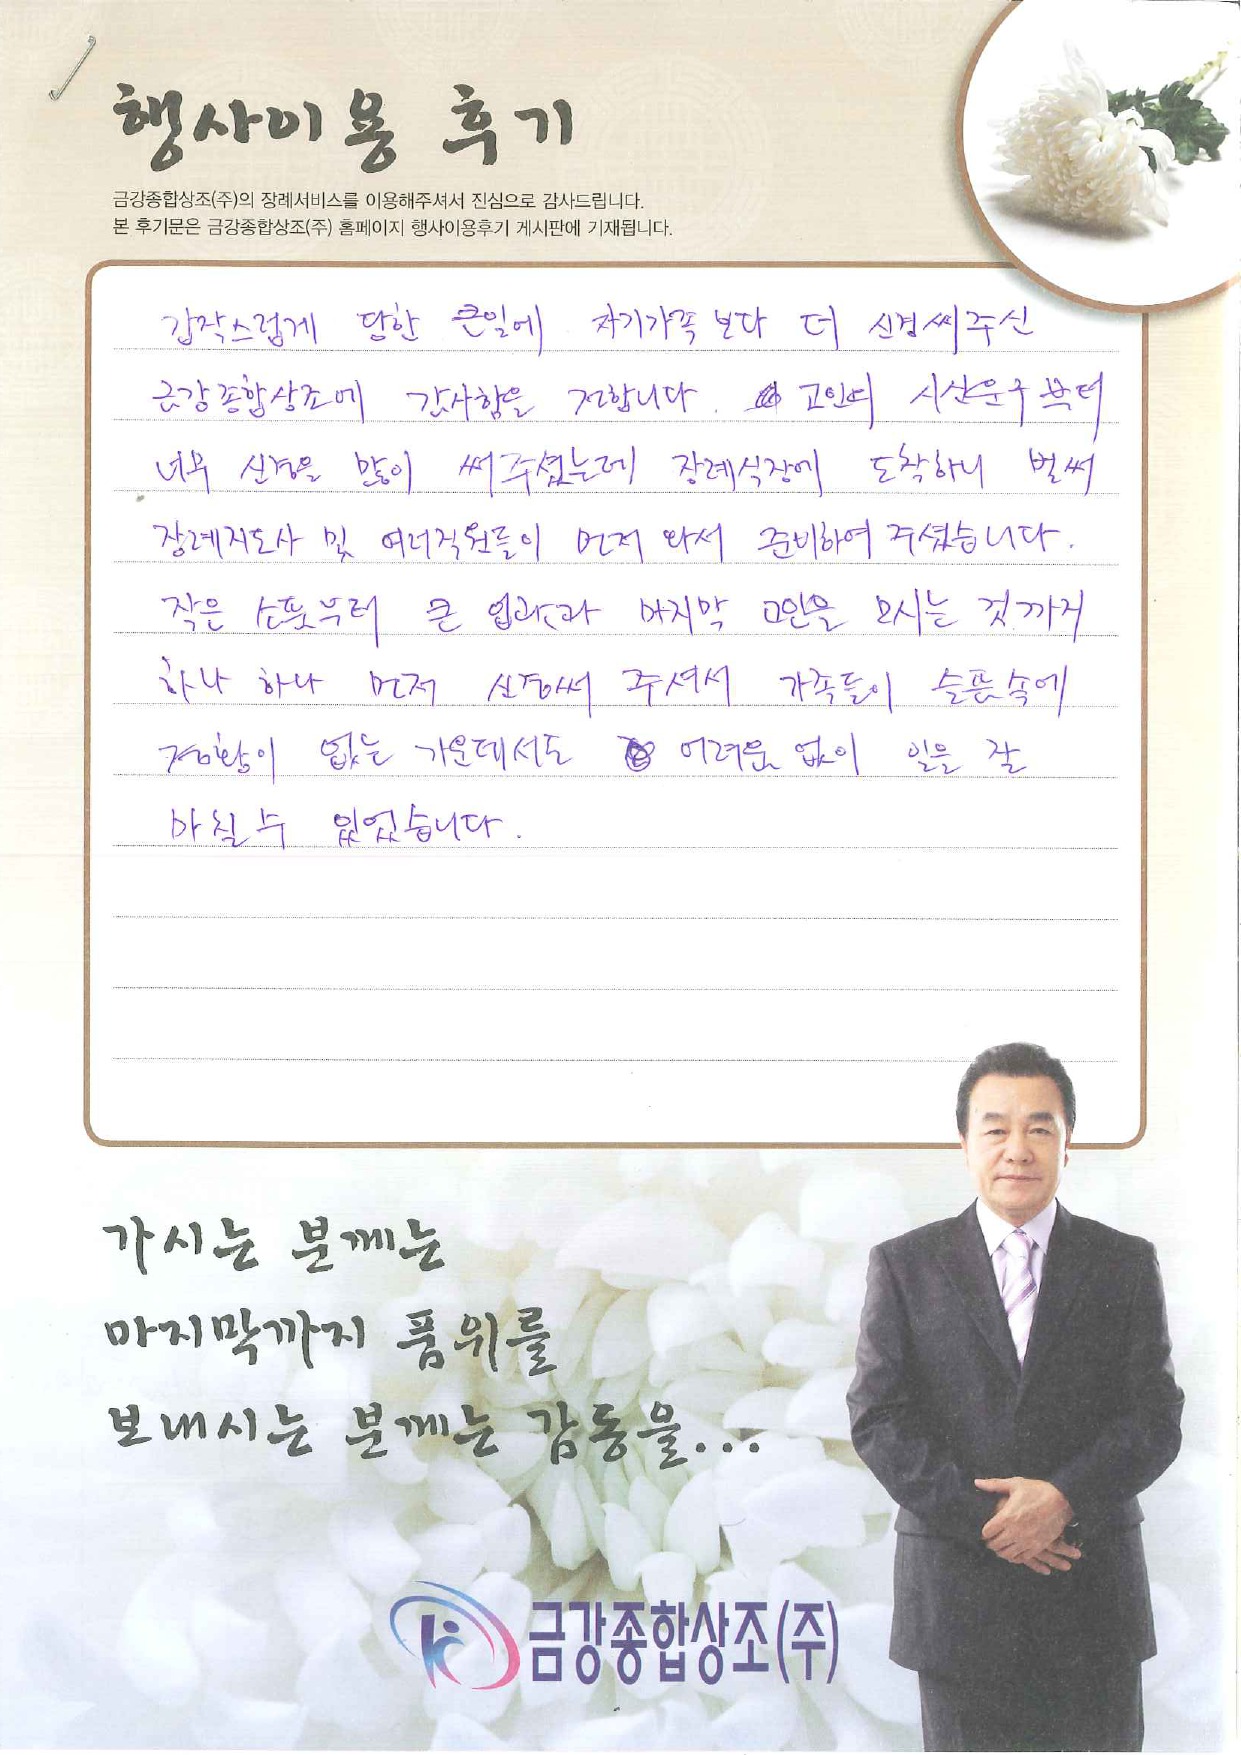 행사이용 후기
금강종합상조(주)의 장례서비스를 이용해주셔서 진심으로 감사드립니다.
본 후기문은 금강종합상조(주) 홈페이지 행사이용후기 게시판에 기재됩니다.
갑작스럽게 당한 큰일에 자기가족보다 더 신경써주신
금강종합상조에 감사함을 전합니다. 고인의 시신운구부터
너무 신경을 많이 써주셨는데 장례식장에 도착하니 벌써
장례지도사 및 여러직원들이 먼저 와서 준비하여 주셨습니다.
작은 소품부터 큰 입관과 마지막 고인을 모시는 것까지
하나 하나 먼저 신경써 주셔서 가족들이 슬픔속에
경황이 없는 가운데서도 어려움 없이 일을 잘
마칠 수 있었습니다.
가시는 분께는
마지막까지 품위를
보내시는 분께는 감동을...
금강종합상조(주)